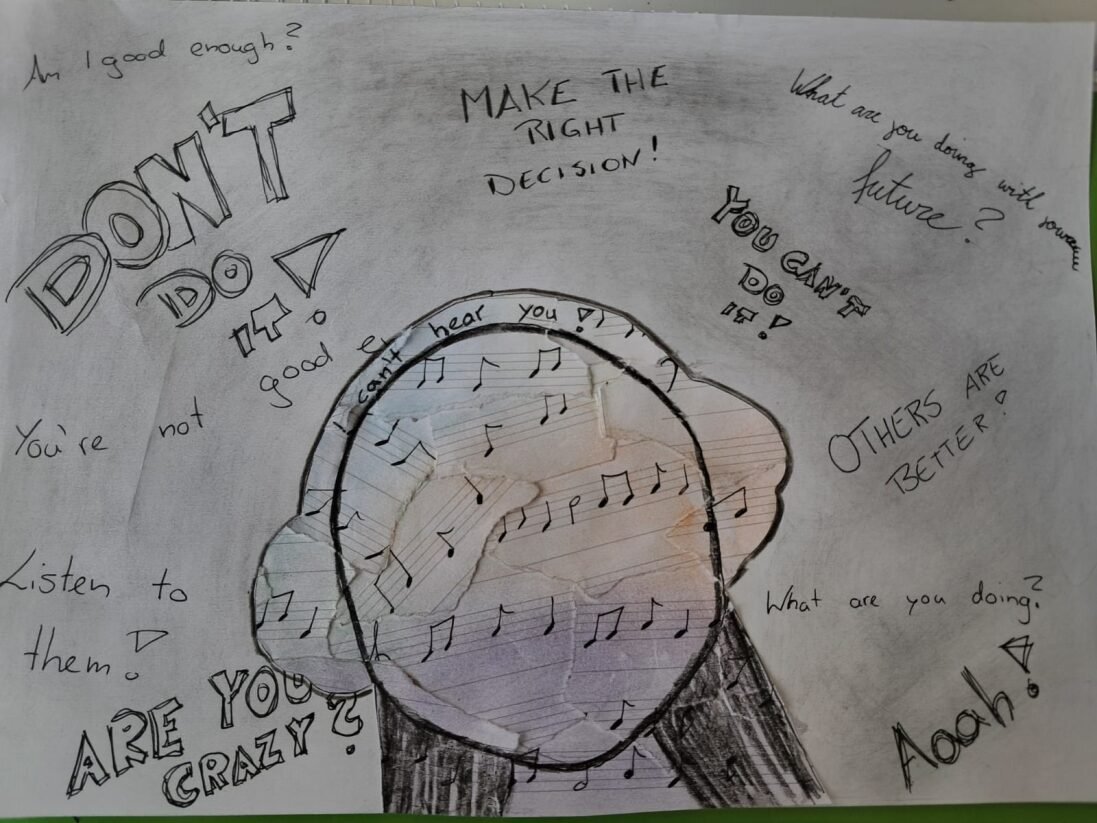 Am I good enough?
DON'T
DO
IT!
MAKE THE
RIGHT
DECISION!
What are you doing with your
future?
YOU CAN'T
DO
IT!
I can't hear you!
You're not good e
OTHERS ARE
BETTER!
Listen to
them!
What are you doing?
ARE YOU
CRAZY?
Aooah!